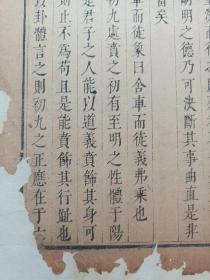 嗣明之德乃可決斷其事曲直是非
者矣
車而徒象曰舍車而徒義弗乘也
初九處賁之初有至明之性體于陽
是君子之人能以道義賁飾其身可
則止不為苟且是能賁飾其行趾也
以卦體言之則初九之正應在于六